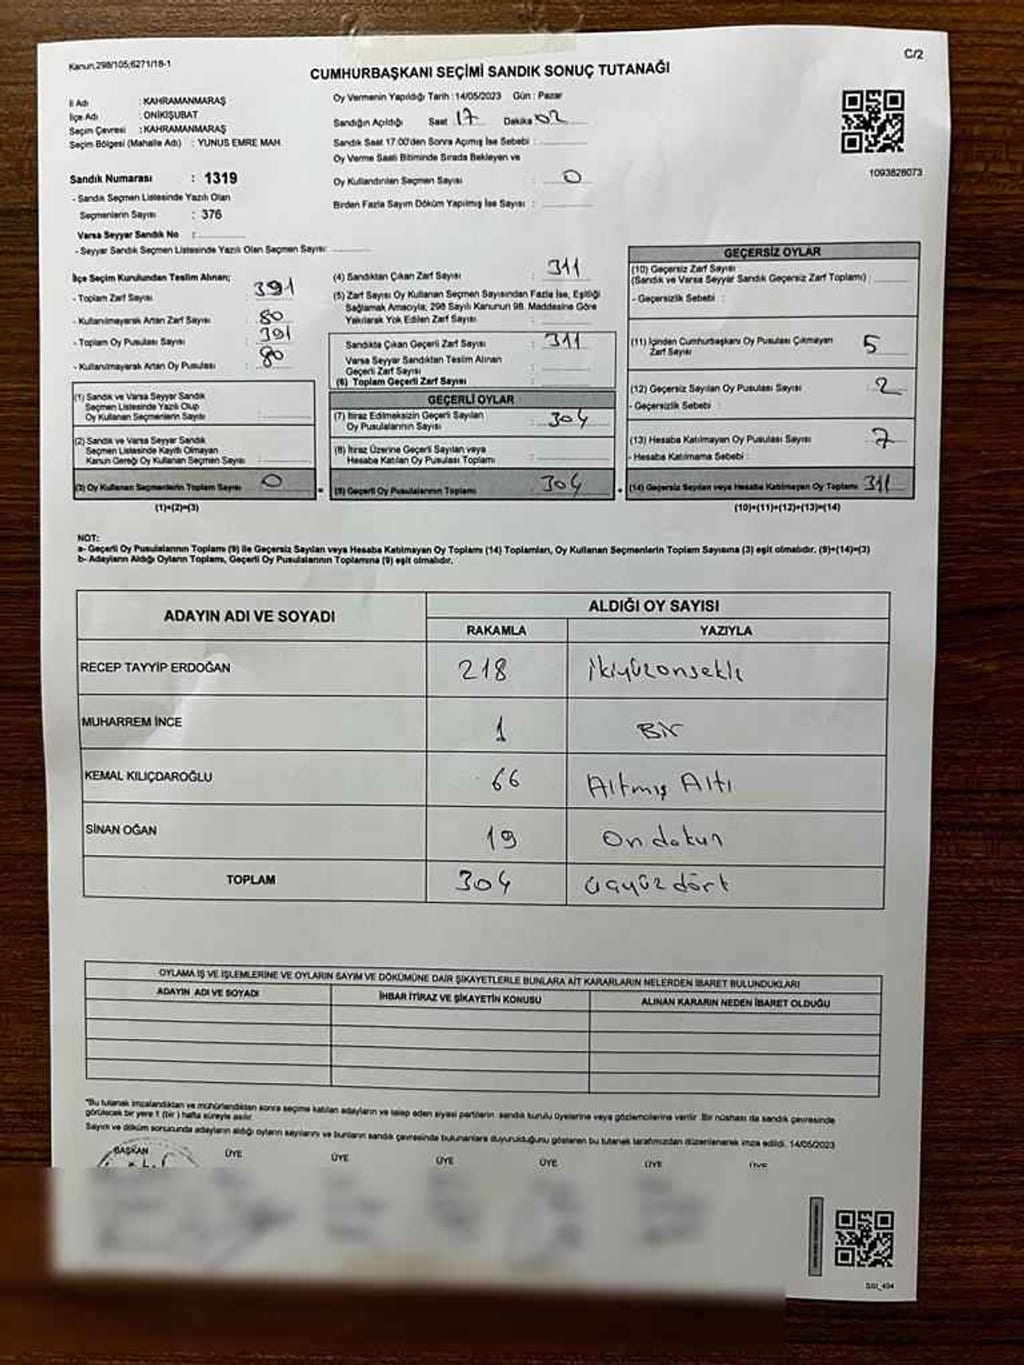 Kanun,298/105;6271/18-1
C/2
CUMHURBAŞKANI SEÇİMİ SANDIK SONUÇ TUTANAĞI
İl Adı : KAHRAMANMARAŞ
İlçe Adı : ONİKİŞUBAT
Seçim Çevresi : KAHRAMANMARAŞ
Seçim Bölgesi (Mahalle Adı) : YUNUS EMRE MAH.
Sandık Numarası : 1319
- Sandık Seçmen Listesinde Yazılı Olan
Seçmenlerin Sayısı : 376
Varsa Seyyar Sandık No :
- Seyyar Sandık Seçmen Listesinde Yazılı Olan Seçmen Sayısı :
Oy Vermenin Yapıldığı Tarih : 14/05/2023 Gün : Pazar
Sandığın Açıldığı Saat 17 Dakika 02
Sandık Saat 17:00'den Sonra Açımış İse Sebebi :
Oy Verme Saati Bitiminde Sırada Bekleyen ve
Oy Kullandırılan Seçmen Sayısı : 0
Birden Fazla Sayım Döküm Yapılmış İse Sayısı :
1093826073
İlçe Seçim Kurulundan Teslim Alınan;
- Toplam Zarf Sayısı : 391
- Kullanılmayarak Artan Zarf Sayısı : 80
- Toplam Oy Pusulası Sayısı : 391
- Kullanılmayarak Artan Oy Pusulası : 80
(1) Sandık ve Varsa Seyyar Sandık
Seçmen Listesinde Yazılı Olup
Oy Kullanan Seçmenlerin Sayısı :
(2) Sandık ve Varsa Seyyar Sandık
Seçmen Listesinde Kayıtlı Olmayan
Kanun Gereği Oy Kullanan Seçmen Sayısı :
(3) Oy Kullanan Seçmenlerin Toplam Sayısı : 0
(1)+(2)=(3)
(4) Sandıktan Çıkan Zarf Sayısı : 311
(5) Zarf Sayısı Oy Kullanan Seçmen Sayısından Fazla İse, Eşitliği
Sağlamak Amacıyla; 298 Sayılı Kanunun 98. Maddesine Göre
Yakılarak Yok Edilen Zarf Sayısı :
Sandıkta Çıkan Geçerli Zarf Sayısı : 311
Varsa Seyyar Sandıktan Teslim Alınan
Geçerli Zarf Sayısı :
(6) Toplam Geçerli Zarf Sayısı :
GEÇERLİ OYLAR
(7) İtiraz Edilmeksizin Geçerli Sayılan
Oy Pusulalarının Sayısı : 304
(8) İtiraz Üzerine Geçerli Sayılan veya
Hesaba Katılan Oy Pusulası Toplamı :
(9) Geçerli Oy Pusulalarının Toplamı : 304
GEÇERSİZ OYLAR
(10) Geçersiz Zarf Sayısı
(Sandık ve Varsa Seyyar Sandık Geçersiz Zarf Toplamı) :
- Geçersizlik Sebebi :
(11) İçinden Cumhurbaşkanı Oy Pusulası Çıkmayan
Zarf Sayısı : 5
(12) Geçersiz Sayılan Oy Pusulası Sayısı : 2
- Geçersizlik Sebebi :
(13) Hesaba Katılmayan Oy Pusulası Sayısı : 7
- Hesaba Katılmama Sebebi :
(14) Geçersiz Sayılan veya Hesaba Katılmayan Oy Toplamı : 311
(10)+(11)+(12)+(13)=(14)
NOT:
a- Geçerli Oy Pusulalarının Toplamı (9) ile Geçersiz Sayılan veya Hesaba Katılmayan Oy Toplamı (14) Toplamları, Oy Kullanan Seçmenlerin Toplam Sayısına (3) eşit olmalıdır. (9)+(14)=(3)
b- Adayların Aldığı Oyların Toplamı, Geçerli Oy Pusulalarının Toplamına (9) eşit olmalıdır.
ADAYIN ADI VE SOYADI
ALDIĞI OY SAYISI
RAKAMLA YAZIYLA
RECEP TAYYİP ERDOĞAN 218 ikiyüzonsekiz
MUHARREM İNCE 1 Bir
KEMAL KILIÇDAROĞLU 66 Altmış Altı
SİNAN OĞAN 19 On dokuz
TOPLAM 304 üçyüz dört
OYLAMA İŞ VE İŞLEMLERİNE VE OYLARIN SAYIM VE DÖKÜMÜNE DAİR ŞİKAYETLERLE BUNLARA AİT KARARLARIN NELERDEN İBARET BULUNDUKLARI
ADAYIN ADI VE SOYADI İHBAR İTİRAZ VE ŞİKAYETİN KONUSU ALINAN KARARIN NEDEN İBARET OLDUĞU
*Bu tutanak imzalandıktan ve mühürlendikten sonra seçime katılan adayların ve talep eden siyasi partilerin sandık kurulu üyelerine veya gözlemcilerine verilir. Bir nüshası da sandık çevresinde
görülecek bir yere 1 (bir) hafta süreyle asılır.
Sayım ve döküm sonucunda adayların aldığı oyların sayılarını ve bunların sandık çevresinde bulunanlara duyurulduğunu gösteren bu tutanak tarafımızdan düzenlenerek imza edildi. 14/05/2023
BAŞKAN ÜYE ÜYE ÜYE ÜYE ÜYE ÜYE